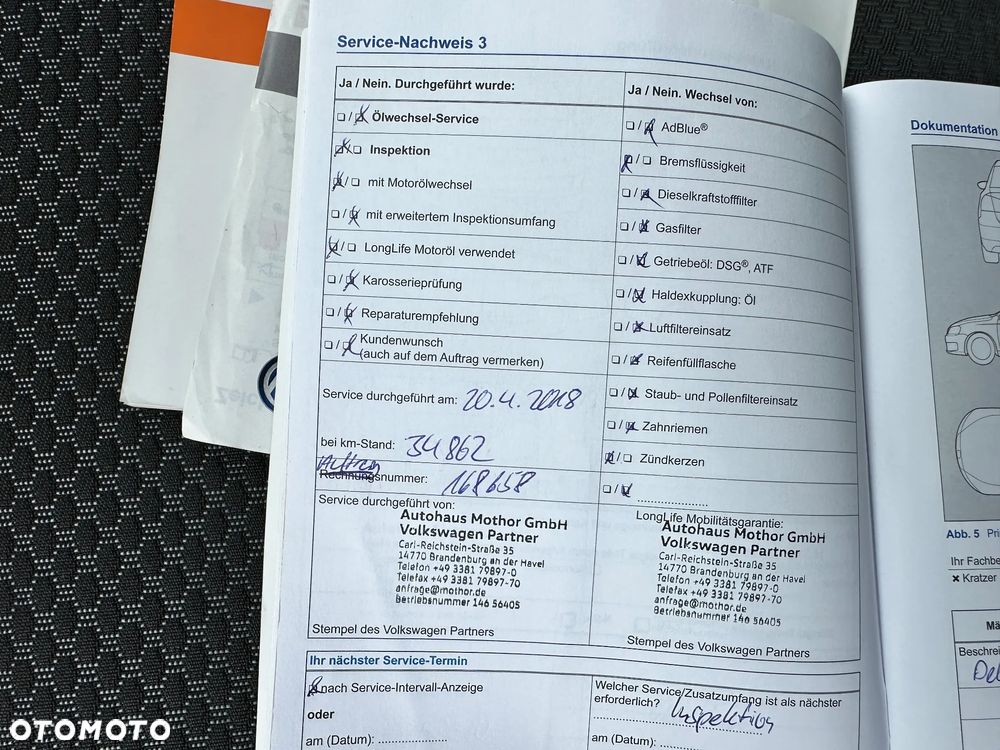 Service-Nachweis 3
Ja / Nein. Durchgeführt wurde:
Ölwechsel-Service
Inspektion
mit Motorölwechsel
mit erweitertem Inspektionsumfang
LongLife Motoröl verwendet
Karosserieprüfung
Reparaturempfehlung
Kundenwunsch
(auch auf dem Auftrag vermerken)
Service durchgeführt am: 20.4.2018
bei km-Stand: 34862
Auftrag
Rechnungsnummer: 168658
Service durchgeführt von:
Autohaus Mothor GmbH
Volkswagen Partner
Carl-Reichstein-Straße 35
14770 Brandenburg an der Havel
Telefon +49 3381 79897-0
Telefax +49 3381 79897-70
anfrage@mothor.de
Betriebsnummer 146 56405
Stempel des Volkswagen Partners
Ja / Nein. Wechsel von:
AdBlue®
Bremsflüssigkeit
Dieselkraftstofffilter
Gasfilter
Getriebeöl: DSG®, ATF
Haldexkupplung: Öl
Luftfiltereinsatz
Reifenfüllflasche
Staub- und Pollenfiltereinsatz
Zahnriemen
Zündkerzen
LongLife Mobilitätsgarantie:
Autohaus Mothor GmbH
Volkswagen Partner
Carl-Reichstein-Straße 35
14770 Brandenburg an der Havel
Telefon +49 3381 79897-0
Telefax +49 3381 79897-70
anfrage@mothor.de
Betriebsnummer 146 56405
Stempel des Volkswagen Partners
Ihr nächster Service-Termin
nach Service-Intervall-Anzeige
oder
am (Datum):
Welcher Service/Zusatzumfang ist als nächster
erforderlich? Inspektion
am (Datum):
Dokumentation
Abb. 5
Ihr Fachbe
Kratzer
Mä
Beschrei
OTOMOTO